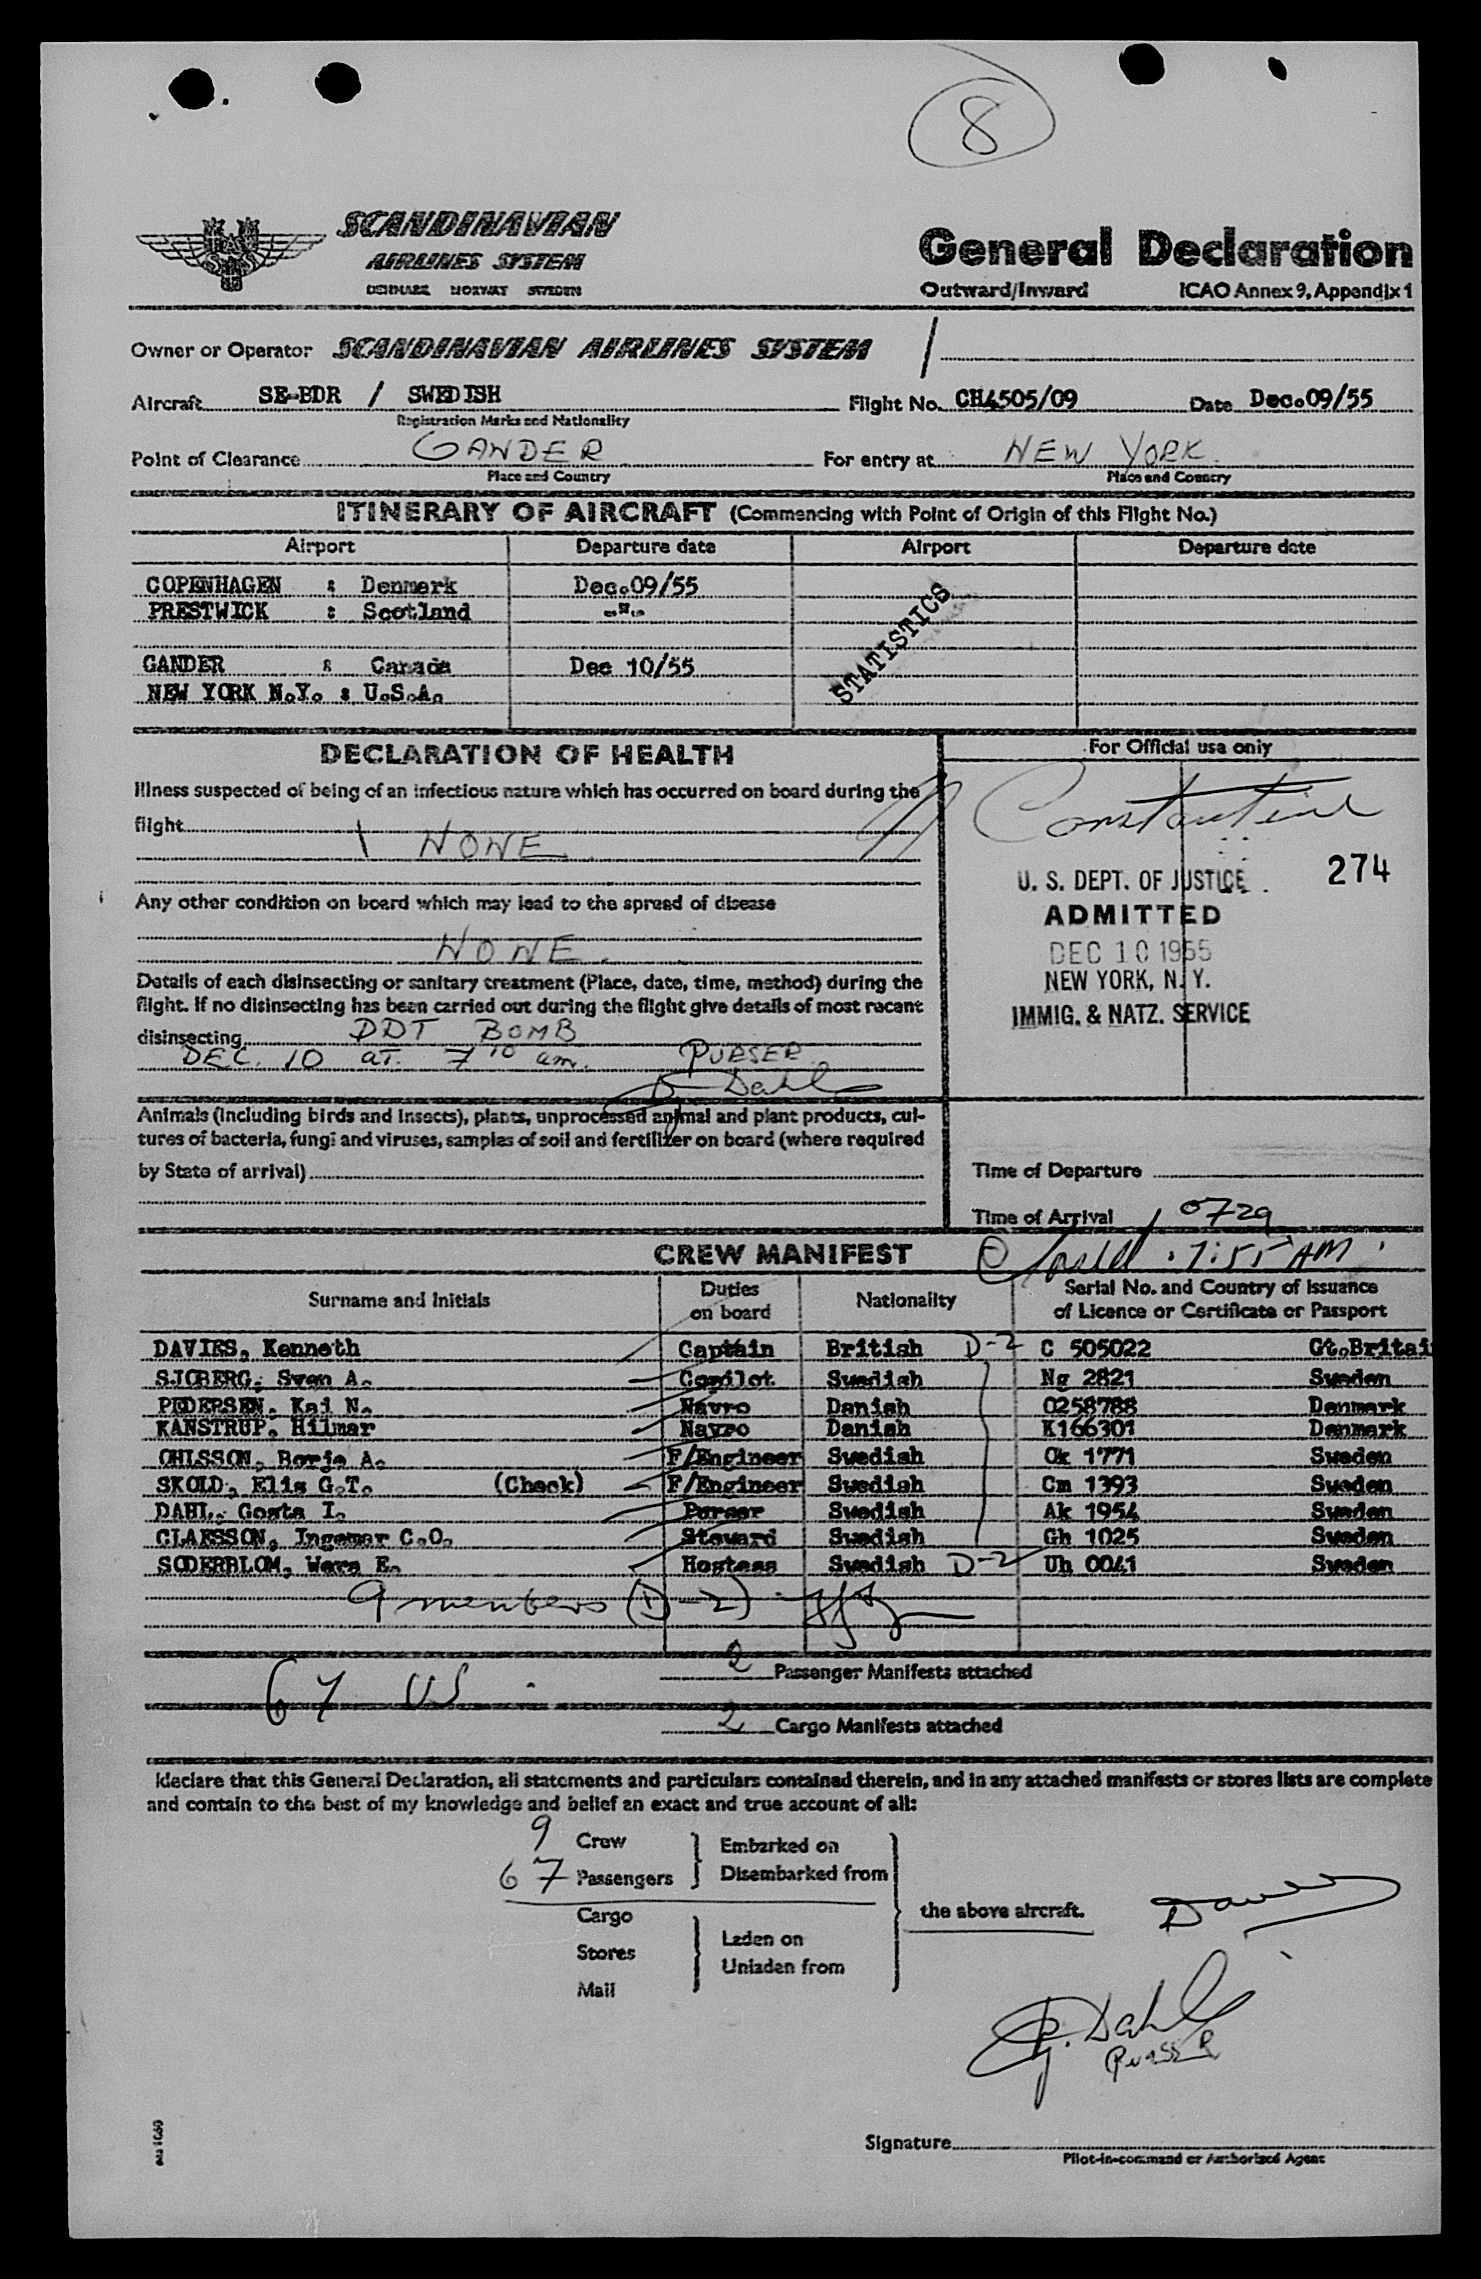 8
SCANDINAVIAN
AIRLINES SYSTEM
DENMARK NORWAY SWEDEN
General Declaration
Outward/Inward ICAO Annex 9, Appendix 1
Owner or Operator SCANDINAVIAN AIRLINES SYSTEM /
Aircraft SE-BDR / SWEDISH Flight No. CH4505/09 Date Dec.09/55
Registration Marks and Nationality
Point of Clearance GANDER For entry at NEW YORK
Place and Country Place and Country
ITINERARY OF AIRCRAFT (Commencing with Point of Origin of this Flight No.)
Airport Departure date Airport Departure date
COPENHAGEN : Denmark Dec.09/55
PRESTWICK : Scotland -"-
GANDER : Canada Dec 10/55
NEW YORK N.Y. : U.S.A.
STATISTICS
DECLARATION OF HEALTH
Illness suspected of being of an infectious nature which has occurred on board during the
flight
NONE
Any other condition on board which may lead to the spread of disease
NONE.
Details of each disinsecting or sanitary treatment (Place, date, time, method) during the
flight. If no disinsecting has been carried out during the flight give details of most recent
disinsecting DDT BOMB
DEC. 10 AT. 7 10 am. PURSER
G Dahl
Animals (including birds and insects), plants, unprocessed animal and plant products, cul-
tures of bacteria, fungi and viruses, samples of soil and fertilizer on board (where required
by State of arrival)
For Official use only
Constantine
274
U. S. DEPT. OF JUSTICE
ADMITTED
DEC 10 1955
NEW YORK, N. Y.
IMMIG. & NATZ. SERVICE
Time of Departure
Time of Arrival 0729
7:55 AM
CREW MANIFEST
Surname and Initials Duties on board Nationality Serial No. and Country of Issuance
of Licence or Certificate or Passport
DAVIES, Kenneth Captain British D-2 C 505022 Gt.Britai
SJOBERG, Sven A. Copilot Swedish Ng 2821 Sweden
PEDERSEN, Kai N. Navro Danish 0258788 Denmark
KANSTRUP, Hilmar Navro Danish K166301 Denmark
OHLSSON, Borje A. F/Engineer Swedish Ok 1771 Sweden
SKOLD, Elis G.T. (Check) F/Engineer Swedish Cm 1393 Sweden
DAHL, Gosta I. Purser Swedish Ak 1954 Sweden
CLAESSON, Ingemar C.O. Steward Swedish Gh 1025 Sweden
SODERBLOM, Wera E. Hostess Swedish D-2 Uh 0041 Sweden
9 members (D-2)
2 Passenger Manifests attached
67
2 Cargo Manifests attached
I declare that this General Declaration, all statements and particulars contained therein, and in any attached manifests or stores lists are complete
and contain to the best of my knowledge and belief an exact and true account of all:
9 Crew
67 Passengers
Embarked on
Disembarked from
Cargo
Stores
Mail
Laden on
Unladen from
the above aircraft.
Davies
G. Dahl
Purser
Signature
Pilot-in-command or Authorized Agent